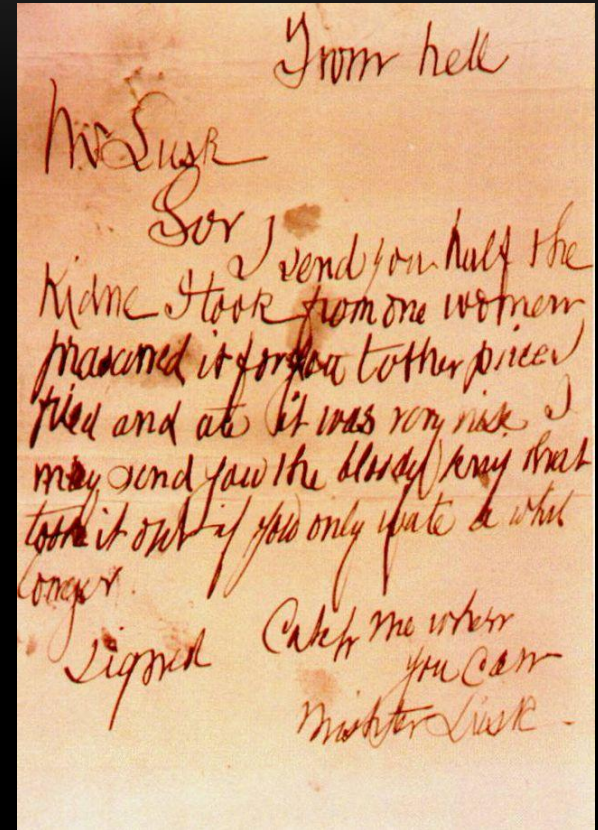 From hell
Mr Lusk
Sor
I send you half the
Kidne I took from one women
prasarved it for you tother piece I
fried and ate it was very nise I
may send you the bloody knif that
took it out if you only wate a whil
longer.
signed
Catch me when
you Can
Mishter Lusk.